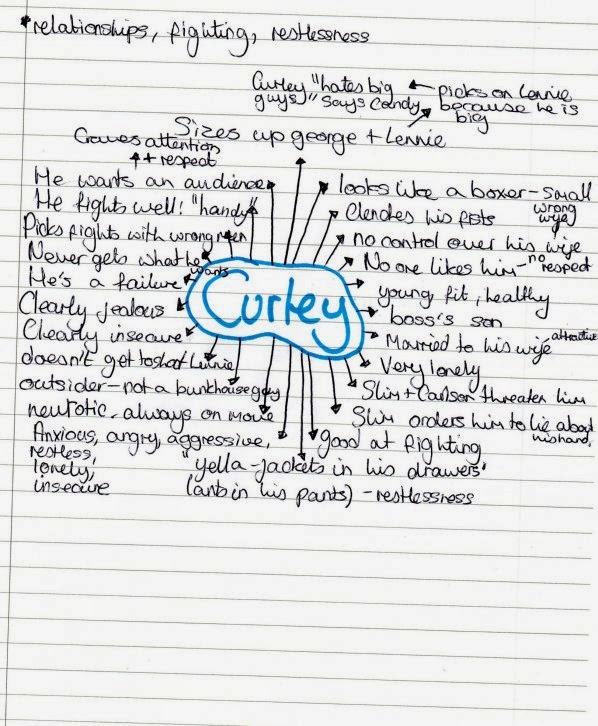 *relationships, fighting, restlessness
Curley "hates big guys" says Candy
picks on Lennie because he is big
Sizes up george + Lennie
Craves attention + respect
He wants an audience
He fights well! "handy"
Picks fights with wrong men
Never gets what he wants
He's a failure
Clearly jealous
Clearly insecure
doesn't get to shoot Lennie
outsider - not a bunkhouse guy
neurotic - always on move
Anxious, angry, aggressive,
restless,
lonely,
insecure
Curley
looks like a boxer - small
Clenches his fists
wrong wife
no control over his wife
No one likes him - no respect
young, fit, healthy
boss's son
Married to his wife attractive
Very lonely
Slim + Carlson threaten him
Slim orders him to lie about his hand.
good at fighting
"yella-jackets in his drawers"
(ants in his pants) - restlessness